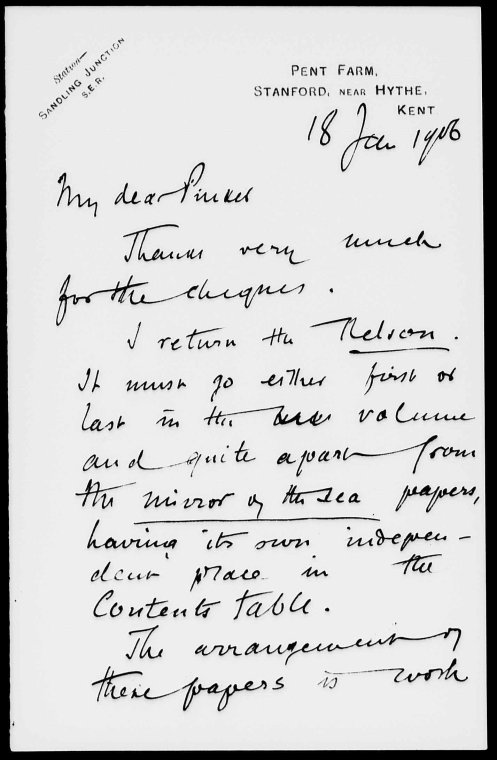 Station—
SANDLING JUNCTION
S.E.R.
PENT FARM,
STANFORD, NEAR HYTHE,
KENT
18 Jan 1906
My dear Pinker
Thanks very much
for the cheques.
I return the Nelson.
It must go either first or
last in the volume
and quite apart from
the mirror of the sea papers,
having its own indepen-
dent place in the
Contents table.
The arrangement of
these papers is work